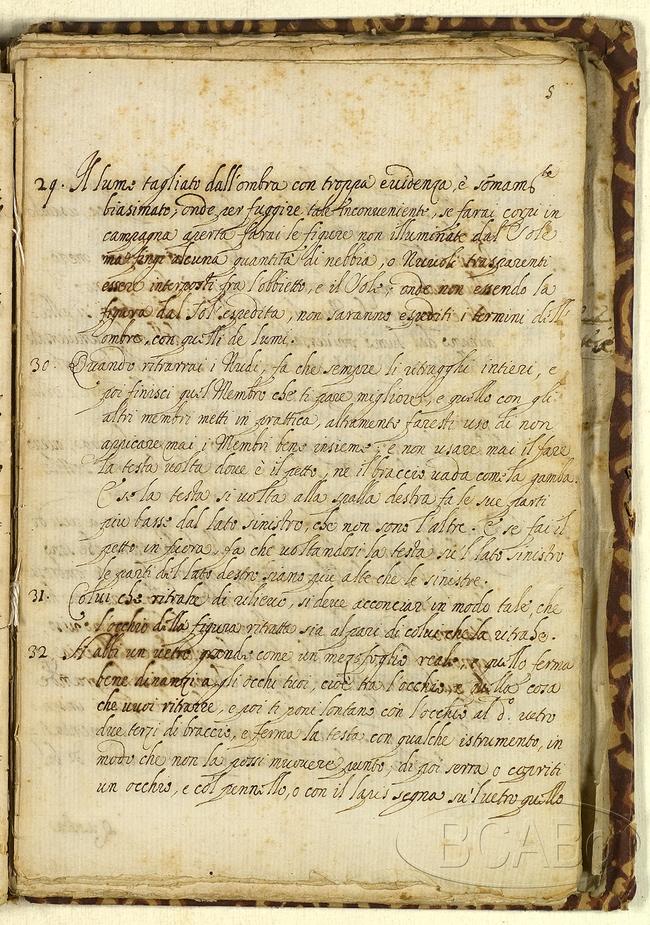 5
29. Il lume tagliato dall'ombra con troppa evidenza, è sommam.te
biasimato; onde per fuggire tale inconveniente, se farai corpi in
campagna aperta farai le figure non illuminate dal Sole
ma fingi alcuna quantità di nebbia, o Nuvoli trasparenti
essere interposti fra l'obbietto, e il Sole; onde non essendo la
figura dal Sol' espedita, non saranno espediti i termini dell'
ombre, con quelli de lumi.
30. Quando ritrarrai i Nudi, fa che sempre li ritragghi intieri, e
poi finisci quel Membro che ti pare migliore, e quello con gli
altri membri metti in prattica, altramente faresti uso di non
appicare mai i Membri bene insieme; e non usare mai il fare
la testa volta dove è il petto, ne il braccio vada come la gamba.
E se la testa si volta alla spalla destra fa le sue parti
più basse dal lato sinistro, che non sono l'altre. E se fai il
petto in fuora, fa che voltandosi la testa su'l lato sinistro
le parti del lato destro siano più alte che le sinistre.
31. Colui che ritrahe di rilievo, si deve acconciar' in modo tale, che
l'occhio della figura ritratta sia al pari di colui che la ritrahe.
32. Habbi un vetro grande come un mezzo foglio reale, e quello ferma
bene dinanzi à gli occhi tuoi, cioè tra l'occhio, e quella cosa
che vuoi ritrarre, e poi ti poni lontano con l'occhio al d.o vetro
due terzi di braccio, e ferma la testa con qualche istrumento, in
modo che non la possi muovere punto; di poi serra o copriti
un occhio, e col pennello, o con il lapis segna su'l vetro quello
BCAB